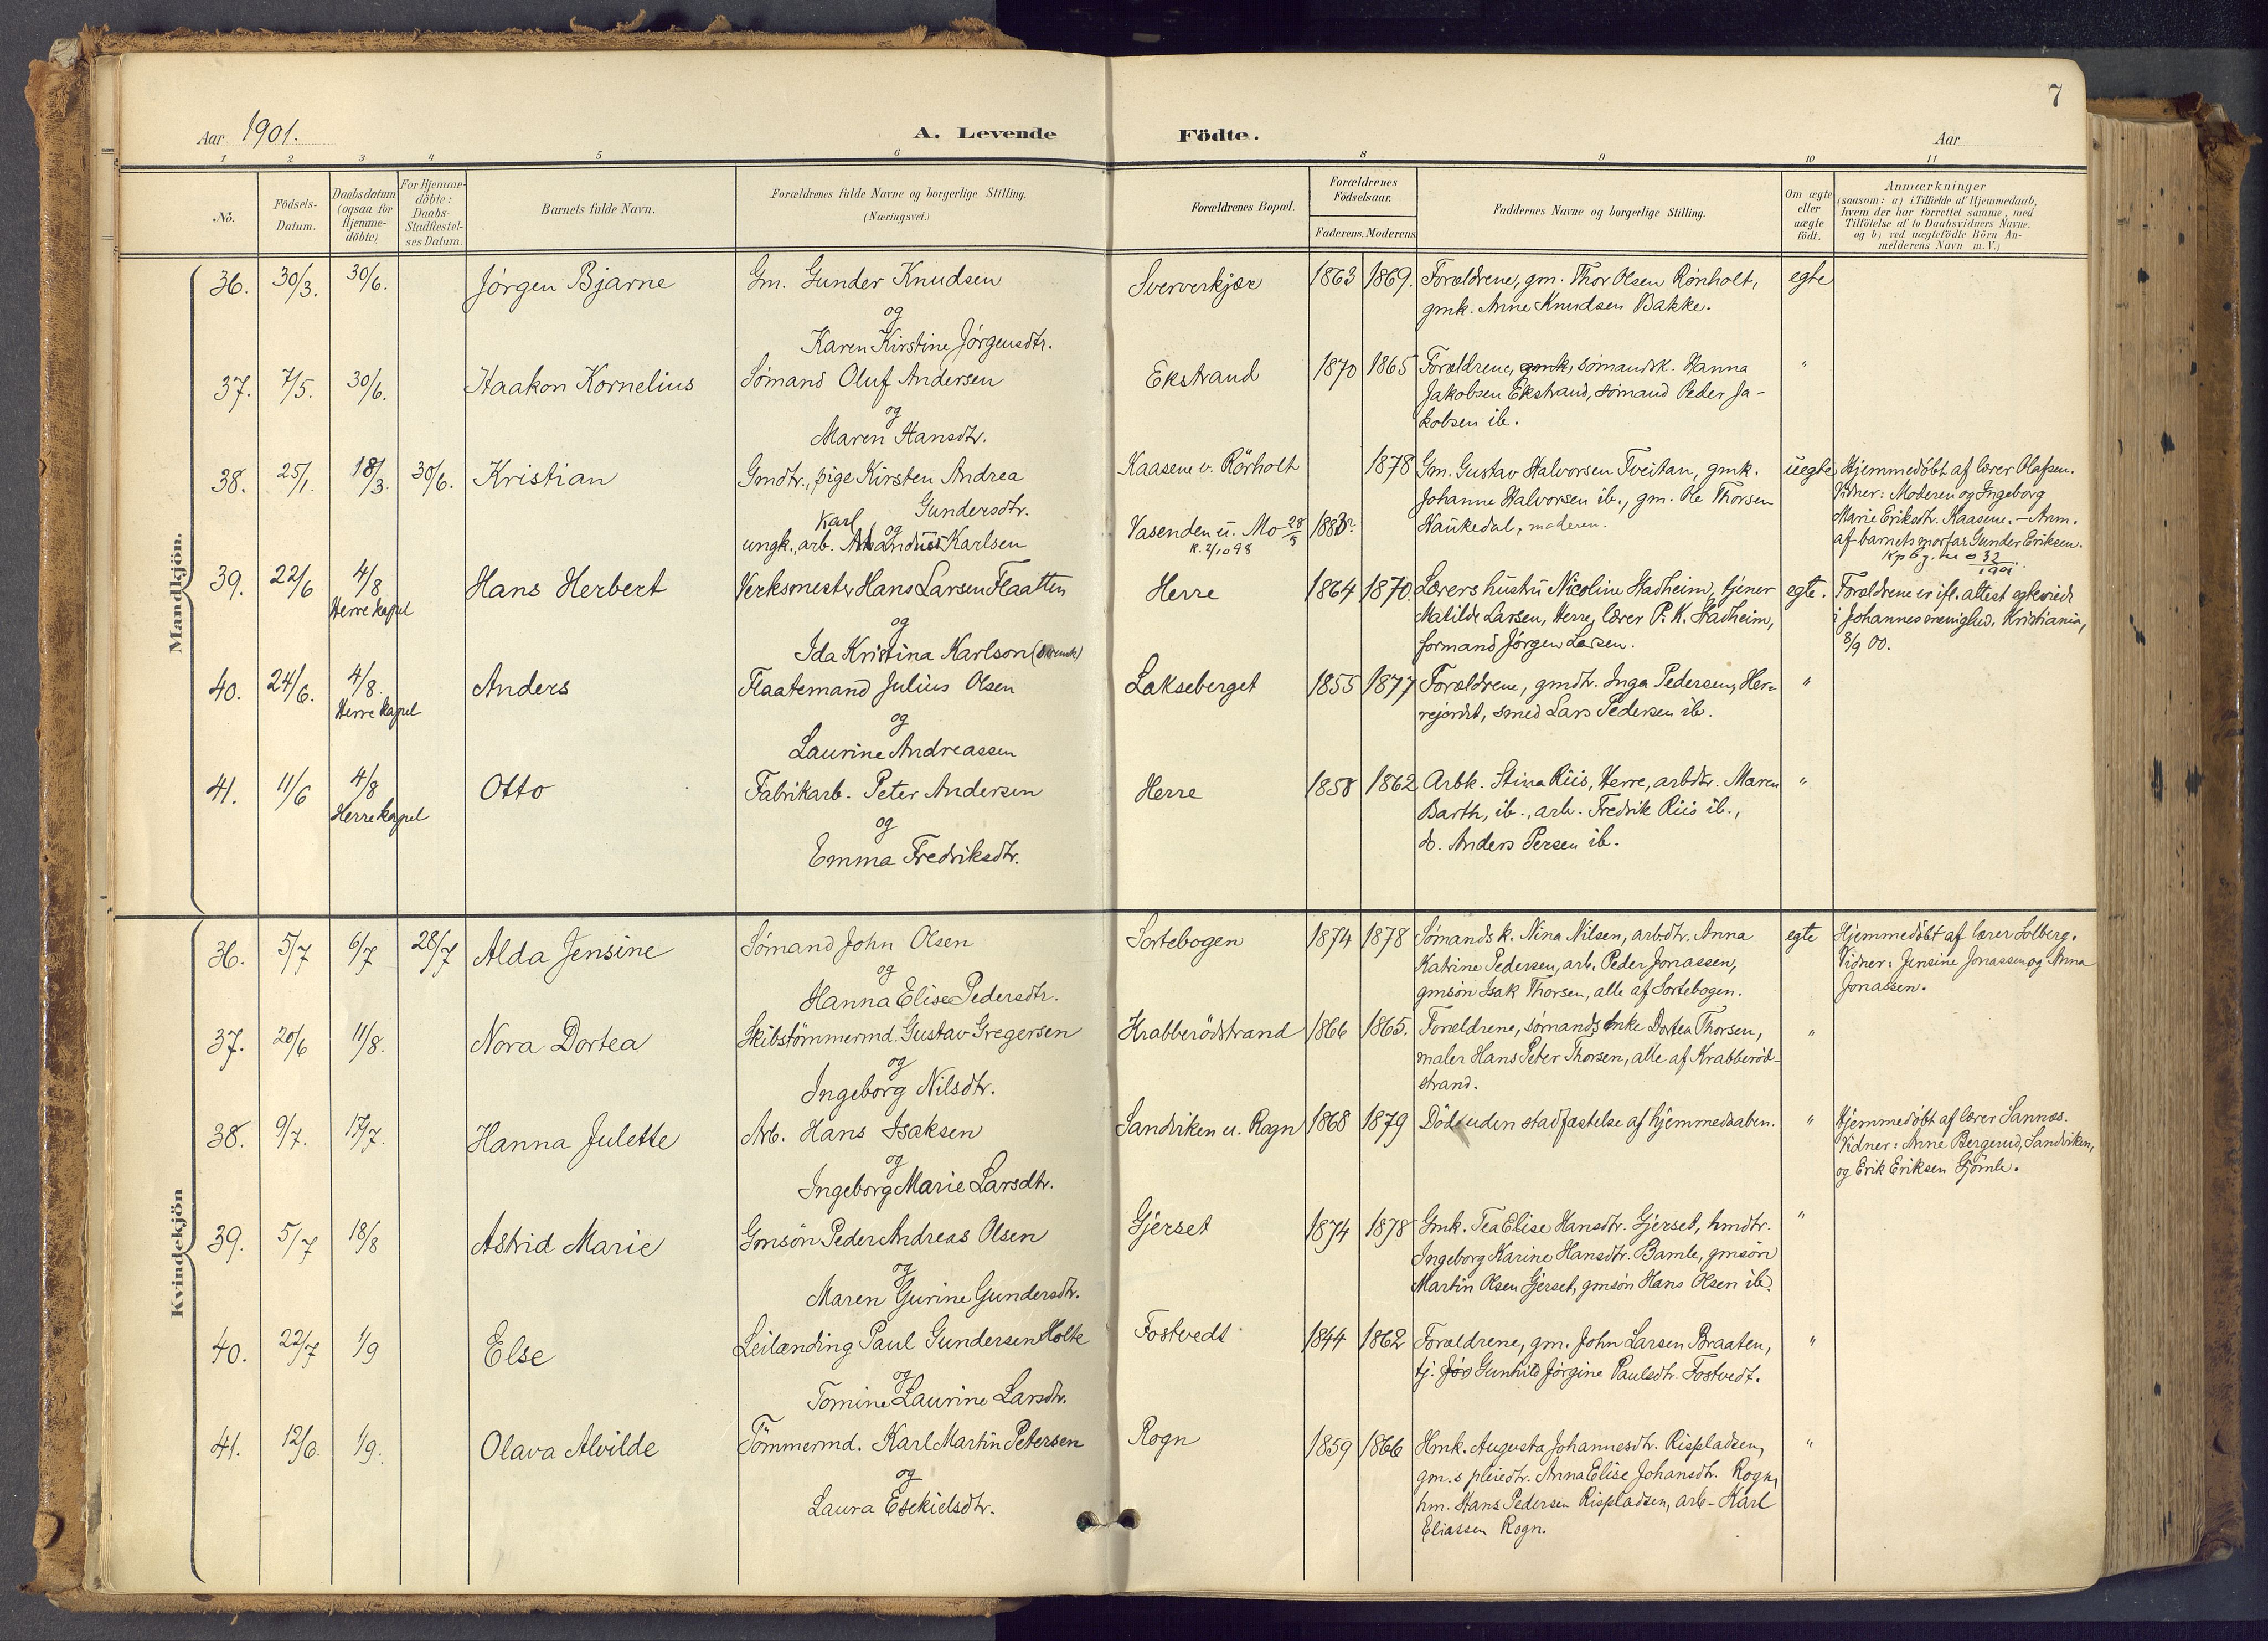 7
Aar 1901.
A. Levende Födte.
Aar
1 2 3 4 5 6 8 9 10 11
No.
Födsels-Datum.
Daabsdatum (ogsaa for Hjemmedöbte)
For Hjemmedöbte: Daabs-Stadfæstelses Datum.
Barnets fulde Navn.
Forældrenes fulde Navne og borgerlige Stilling. (Næringsvei.)
Forældrenes Bopæl.
Forældrenes Födselsaar.
Faderens. Moderens.
Faddernes Navne og borgerlige Stilling.
Om ægte eller uægte födt.
Anmærkninger
(saasom: a) i Tilfælde af Hjemmedaab,
hvem der har forrettet samme, med
Tilföielse af to Daabsvidners Navne.
og b) ved uægtefödte Börn An-
melderens Navn m. V.)
Mandkjön.
36. 30/3. 30/6. Jörgen Bjarne
Gm. Gunder Knudsen
og
Karen Kirstine Jörgensdtr.
Sververkjær 1863 1869.
Forældrene, gm. Thor Olsen Rönholt,
gmk. Anne Knudsen Bakke.
egte
37. 7/5. 30/6. Haakon Kornelius
Sömand Oluf Andersen
og
Maren Hansdtr.
Ekstrand 1870 1865
Forældrene, gmk, sömandsk. Hanna
Jakobsen Ekstrand, sömand Peder Ja-
kobsen ib.
"
38. 25/1. 18/3. 30/6. Kristian
Gmdtr., pige Kirsten Andrea
Gundersdtr.
Karl og
ungk., arb. Karlsen
Kaasene v. Rörholt 1878
Vasenden u. Mo 28/5
K. 2/10 98
Gm. Gustav Halvorsen Tveitan, gmk.
Johanne Halvorsen ib., gm. Ole Thorsen
Haukedal, moderen.
uegte
Hjemmedöbt af lærer Olafsen.
Vidner: Moderen og Ingeborg
Marie Eriksdtr. Kaasene. – Anm.
af barnets morfar Gunder Eriksen.
39. 22/6 4/8 Herre kapel Hans Herbert
Verksmester Hans Larsen Flaatten
og
Ida Kristina Karlson (svensk)
Herre 1864 1870.
Lærers hustru Nicoline Stadheim, tjener
Matilde Larsen, Herre, lærer P. K. Stadheim,
formand Jörgen Larsen.
egte.
Forældrene er ifl. attest egteviede
i Johannes menighed, Kristiania,
8/9 00.
40. 24/6. 4/8. Herre kapel Anders
Flaatemand Julius Olsen
og
Laurine Andreassen
Lakseberget 1855 1877
Forældrene, gmdtr. Inga Pedersen, Her-
rejordet, smed Lars Pedersen ib.
"
41. 11/6 4/8 Herre kapel Otto
Fabrikarb. Peter Andersen
og
Emma Fredriksdtr.
Herre 1858 1862
Arbk. Stina Riis, Herre, arbdtr. Maren
Barth, ib., arb. Fredrik Riis ib.,
do. Anders Persen ib.
"
Kvindekjön
36. 5/7 6/7 28/7 Alda Jensine
Sömand John Olsen
og
Hanna Elise Pedersdtr.
Sortebogen 1874 1878
Sömandsk. Nina Nilsen, arbdtr. Anna
Katrine Pedersen, arb. Peder Jonassen,
gmsön Isak Thorsen, alle af Sortebogen.
egte
Hjemmedöbt af lærer Solberg.
Vidner: Jensine Jonassen og Anna
Jonassen.
37. 20/6 11/8. Nora Dortea
Skibstömmermd. Gustav Gregersen
og
Ingeborg Nilsdtr.
Krabberödstrand 1866 1865.
Forældrene, sömands enke Dortea Thorsen,
maler Hans Peter Thorsen, alle af Krabberöd-
strand.
"
38. 9/7. 17/7. Hanna Julette
Arb. Hans Isaksen
og
Ingeborg Marie Larsdtr.
Sandviken u. Rogn 1868 1879
Död uden stadfæstelse af hjemmedaaben.
"
Hjemmedöbt af lærer Sannæs.
Vidner: Anne Bergerud, Sandviken,
og Erik Eriksen Gjömle.
39. 5/7 18/8 Astrid Marie
Gmsön Peder Andreas Olsen
og
Maren Gurine Gundersdtr.
Gjerset 1874 1878
Gmk. Tea Elise Hansdtr. Gjerset, hmdtr.
Ingeborg Karine Hansdtr. Bamle, gmsön
Martin Olsen Gjerset, gmsön Hans Olsen ib.
"
40. 22/7 1/9 Else
Leilænding Paul Gundersen Holte
og
Tomine Laurine Larsdtr.
Fostvedt 1844 1862
Forældrene, gm. John Larsen Braaten,
tj. Jör Gunhild Jörgine Paulsdtr. Fostvedt.
"
41. 12/6. 1/9. Olava Alvilde
Tömmermd. Karl Martin Petersen
og
Laura Esekielsdtr.
Rogn 1859 1866
Hmk. Augusta Johannesdtr. Rispladsen,
gm.s pleiedtr. Anna Elise Johansdtr. Rogn,
hm. Hans Pedersen Rispladsen, arb. Karl
Eliassen Rogn.
"